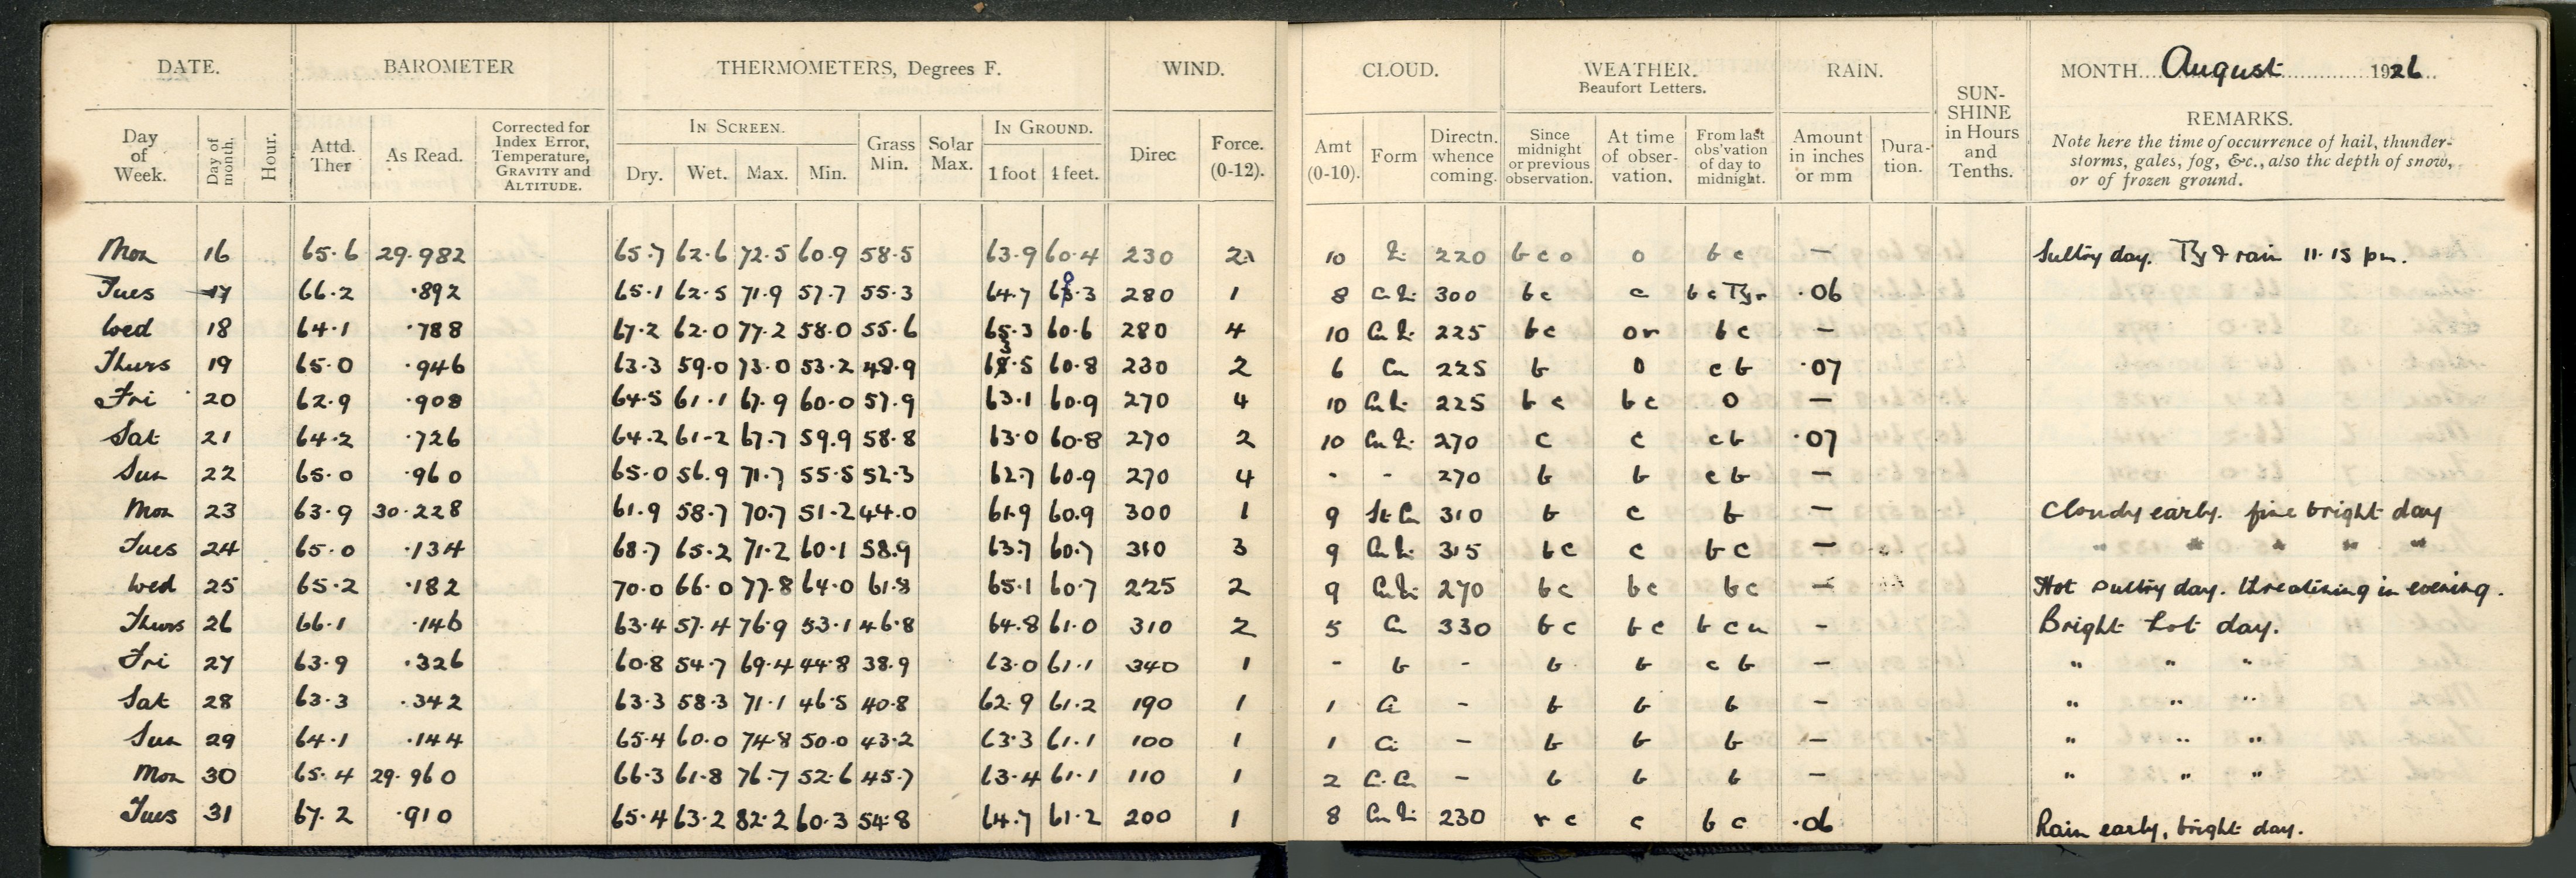 DATE. BAROMETER THERMOMETERS, Degrees F. WIND. CLOUD. WEATHER. Beaufort Letters. RAIN. SUN-SHINE in Hours and Tenths. MONTH August 1926
REMARKS.
Note here the time of occurrence of hail, thunder-
storms, gales, fog, &c., also the depth of snow,
or of frozen ground.
IN SCREEN. IN GROUND.
Day of Week. Day of month. Hour. Attd. Ther As Read. Corrected for Index Error, Temperature, GRAVITY and ALTITUDE. Dry. Wet. Max. Min. Grass Min. Solar Max. 1 foot 4 feet. Direc Force. (0-12). Amt (0-10). Form Directn. whence coming. Since midnight or previous observation. At time of obser-vation. From last obs'vation of day to midnight. Amount in inches or mm Dura-tion.
Mon 16 65.6 29.982 65.7 62.6 72.5 60.9 58.5 63.9 60.4 230 2 10 220 b c o o b c — Sultry day. & rain 11.15 pm.
Tues 17 66.2 .892 65.1 62.5 71.9 57.7 55.3 64.7 60.3 280 1 8 300 b c c b c .06
Wed 18 64.1 .788 67.2 62.0 77.2 58.0 55.6 65.3 60.6 280 4 10 225 b c o r b c —
Thurs 19 65.0 .946 63.3 59.0 73.0 53.2 48.9 63.5 60.8 230 2 6 Cu 225 b o c b .07
Fri 20 62.9 .908 64.5 61.1 67.9 60.0 57.9 63.1 60.9 270 4 10 225 b c b c o —
Sat 21 64.2 .726 64.2 61.2 67.7 59.9 58.8 63.0 60.8 270 2 10 270 c c c b .07
Sun 22 65.0 .960 65.0 56.9 71.7 55.5 52.3 62.7 60.9 270 4 - - 270 b b c b —
Mon 23 63.9 30.228 61.9 58.7 70.7 51.2 44.0 61.9 60.9 300 1 9 St Cu 310 b c b — Cloudy early. fine bright day
Tues 24 65.0 .134 68.7 65.2 71.2 60.1 58.9 63.7 60.7 310 3 9 315 b c c b c — " " " " "
Wed 25 65.2 .182 70.0 66.0 77.8 64.0 61.8 65.1 60.7 225 2 9 270 b c b c b c — Hot sultry day. threatening in evening.
Thurs 26 66.1 .146 63.4 57.4 76.9 53.1 46.8 64.8 61.0 310 2 5 Cu 330 b c b c b c — Bright hot day.
Fri 27 63.9 .326 60.8 54.7 69.4 44.8 38.9 63.0 61.1 340 1 - b - b b c b — " " "
Sat 28 63.3 .342 63.3 58.3 71.1 46.5 40.8 62.9 61.2 190 1 1 Ci - b b b — " " "
Sun 29 64.1 .144 65.4 60.0 74.8 50.0 43.2 63.3 61.1 100 1 1 Ci - b b b — " " "
Mon 30 65.4 29.960 66.3 61.8 76.7 52.6 45.7 63.4 61.1 110 1 2 - b b b — " " "
Tues 31 67.2 .910 65.4 63.2 82.2 60.3 54.8 64.7 61.2 200 1 8 230 r c c b c .06 Rain early, bright day.